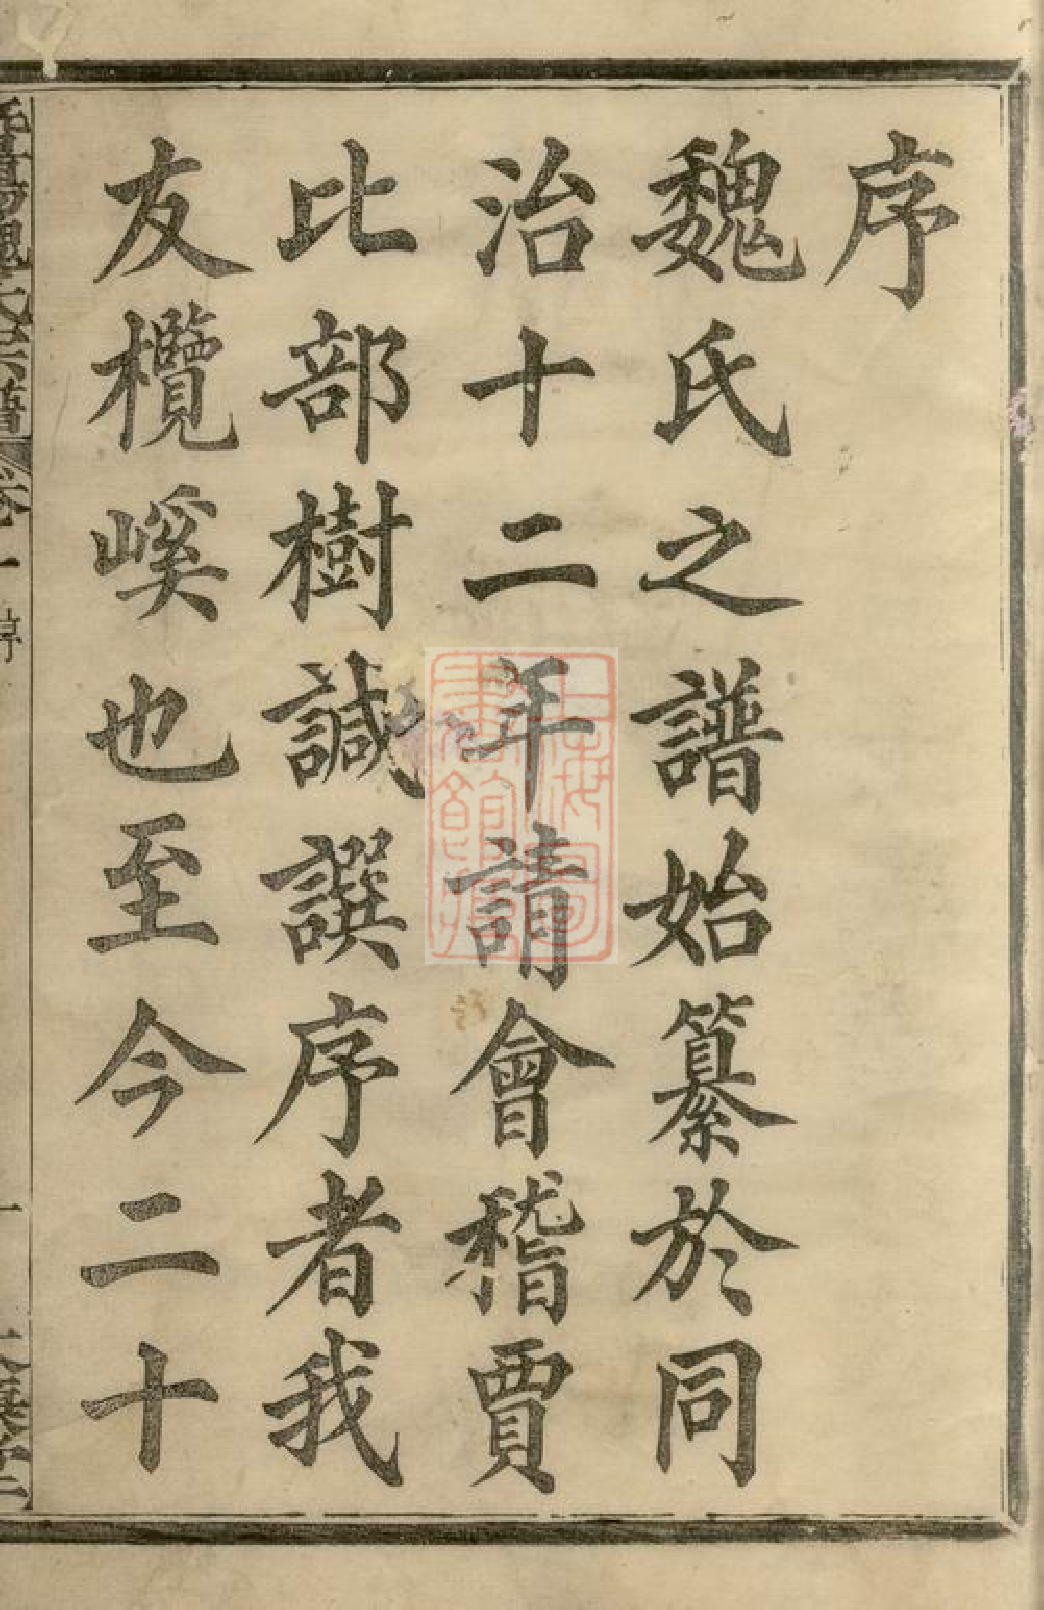 序
魏氏之譜始纂於同
治十二年請會稽賈
比部樹諴譔序者我
友欖嵠也至今二十
魏氏宗譜 卷一 序
上海圖書館藏